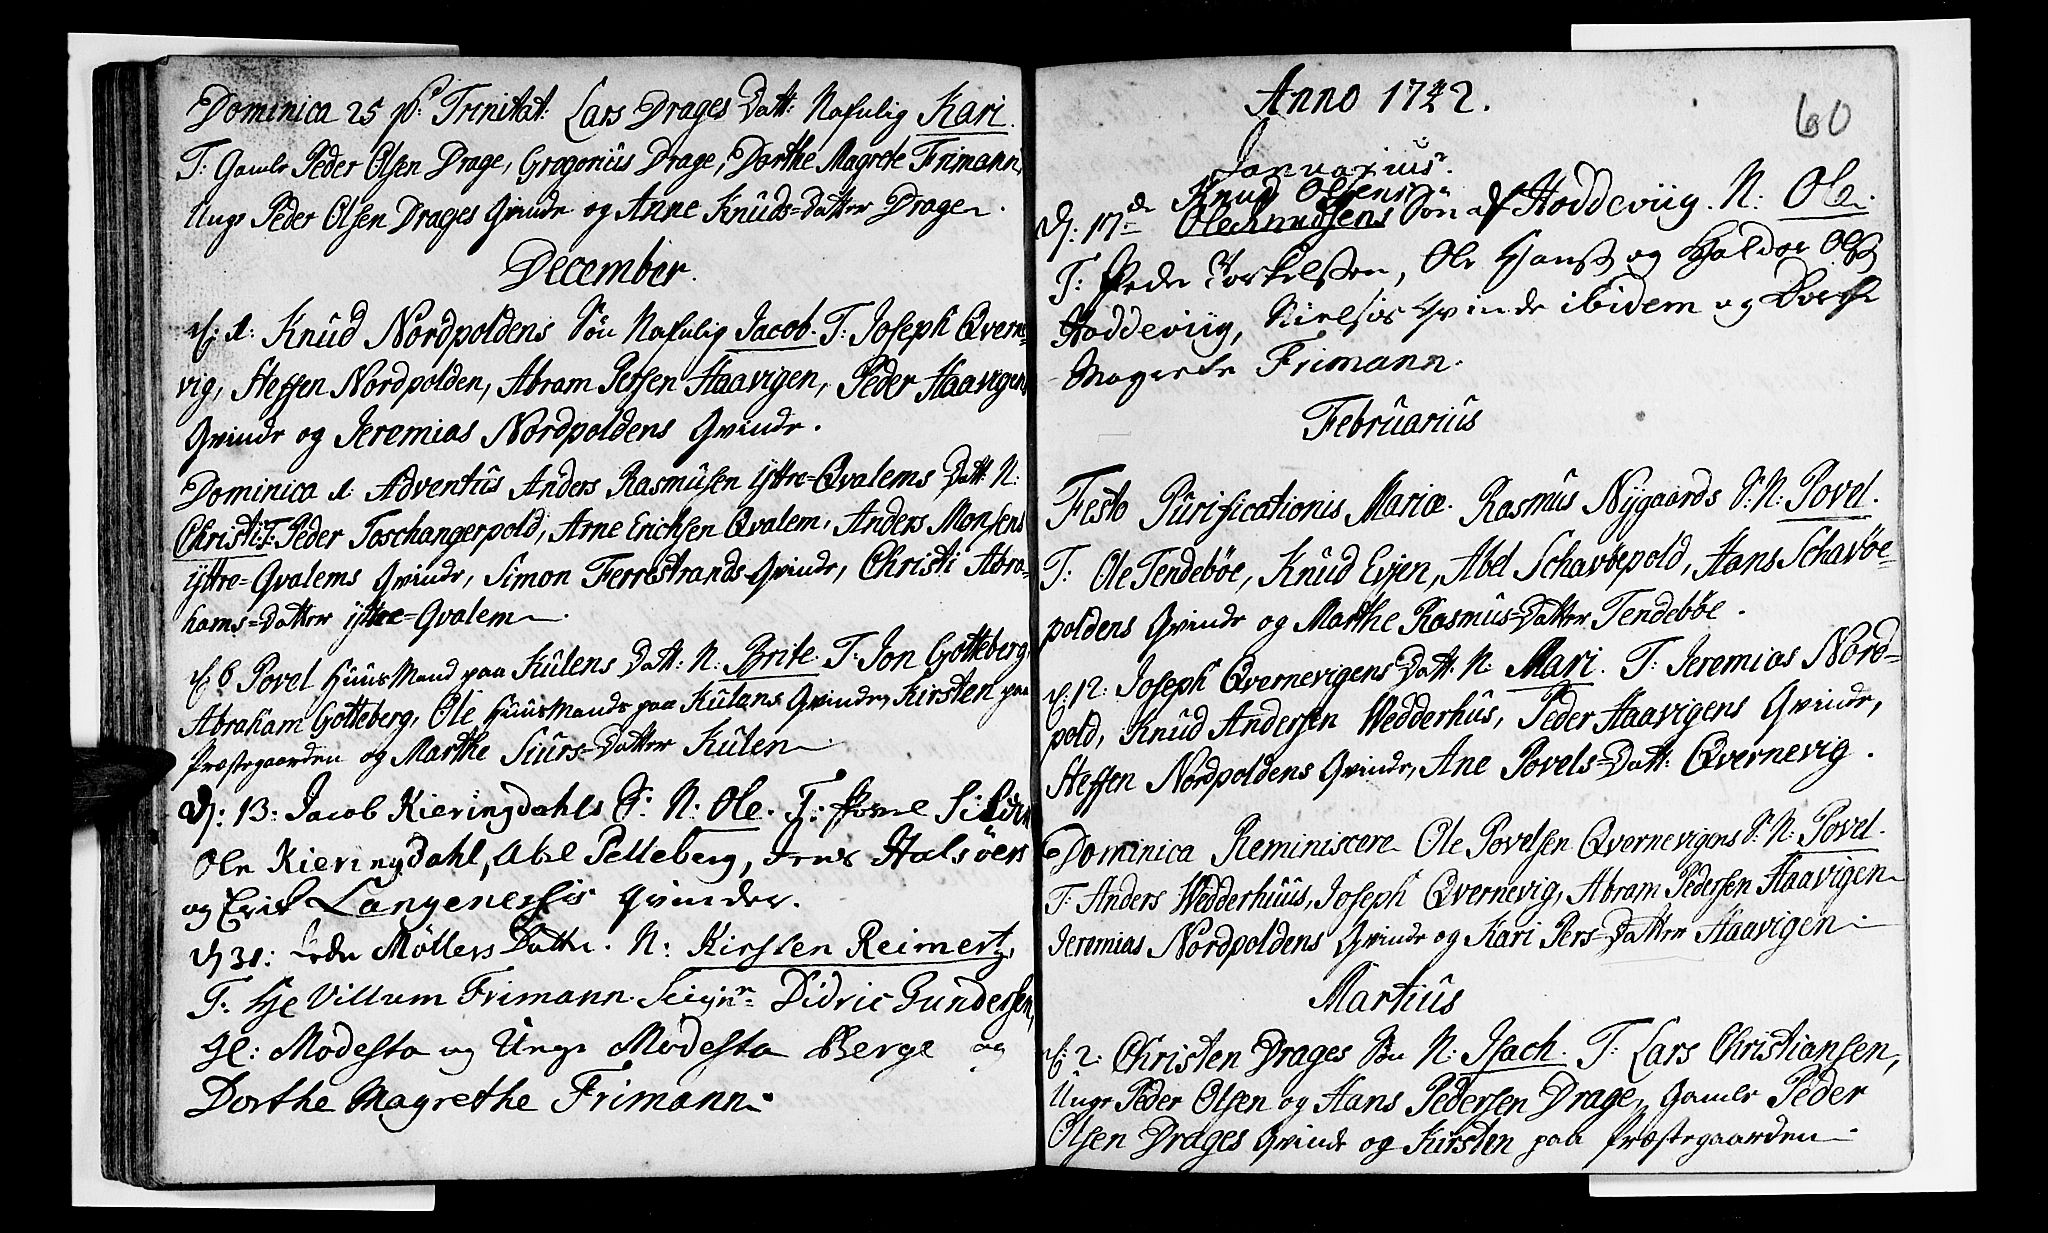 Dominica 25 p. Trinitat: Lars Drages Datt: Nafnlig Kari.
T: Gamle Peder Olsen Drage, Gregorius Drage, Dorthe Magrete Frimann,
Unge Peder Olsen Drages Qvinde og Anne Knuds=Datter Drage.
December.
d: 1: Knud Nordpoldens Søn Nafnlig Jacob. T: Joseph Qverne-
vig, Steffen Nordpolden, Abram Persen Haavigen, Peder Haavigens
Qvinde og Jeremias Nordpoldens Qvinde.
Dominica 1: Adventus Anders Rasmusen yttre=Qvalems Datt: N:
Christi. T: Peder Toschangerpold, Arne Erichsen Qvalem, Anders Monsens
yttre=Qvalems Qvinde, Simon Ferrestrands Qvinde, Christi Abra-
hams=Datter yttre=Qvalem.
d: 6 Povel Huusmand paa Kulens Datt: N: Brite. T: Jon Gotteberg,
Abraham Gotteberg, Ole Huusmands paa Kulens Qvinde, Kirsten paa
Præstegaarden og Marthe Siurs=Datter Kulen.
D: 13: Jacob Kieringdahls S: N: Ole. T: Povel Silden
Ole Kieringdahl, Abel Pelleberg, Jens Halsøers
og Erik Langenessis Qvinder.
D 31: Peder Møllers Datter. N: Kirsten Reimertz,
T: Hr Villum Frimann. Seign: Didric Gundersen,
Gl: Modesta og Unge Modesta Berge og
Dorthe Magrethe Frimann.
Anno 1742.
60
Januarius.
Knud Olsens
D: 17 de Ole Knudsens Søn af Hoddeviig. N: Ole.
T: Peder Torkelssen, Ole Hanss og Haldor Olss
Hoddeviig, Nielses Qvinde ibidem og Dorthe
Magrete Frimann.
Februarius
Festo Purificationis Mariæ. Rasmus Nygaards S: N: Povel.
T: Ole Tendebøe, Knud Evjen, Abel Schavøepold, Hans Schavøe-
poldens Qvinde og Marthe Rasmus=Datter Tendebøe.
d: 12: Joseph Qvernevigens Datt: N: Mari. T: Jeremias Nord-
pold, Knud Andersen Wedderhus, Peder Haavigens Qvinde,
Steffen Nordpoldens Qvinde, Ane Povels=Datt: Qvernevig.
Dominica Reminiscere Ole Povelsen Qvernevigens S: N: Povel.
T: Anders Wedderhuus, Joseph Qvernevig, Abram Pedersen Haavigen
Jeremias Nordpoldens Qvinde og Kari Pers=Datter Haavigen.
Martius
d: 2: Christen Drages Søn N: Isach. T: Lars Christiansen,
Unge Peder Olsen og Hans Pedersen Drage, Gamle Peder
Olsen Drages Qvinde og Kirsten paa Præstegaarden.